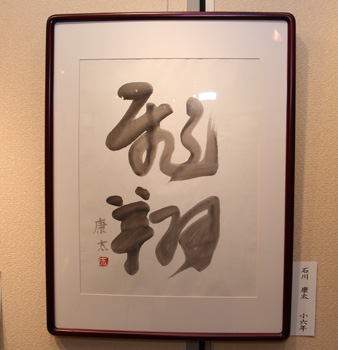 飛翔
康太
石川 康太 小六年